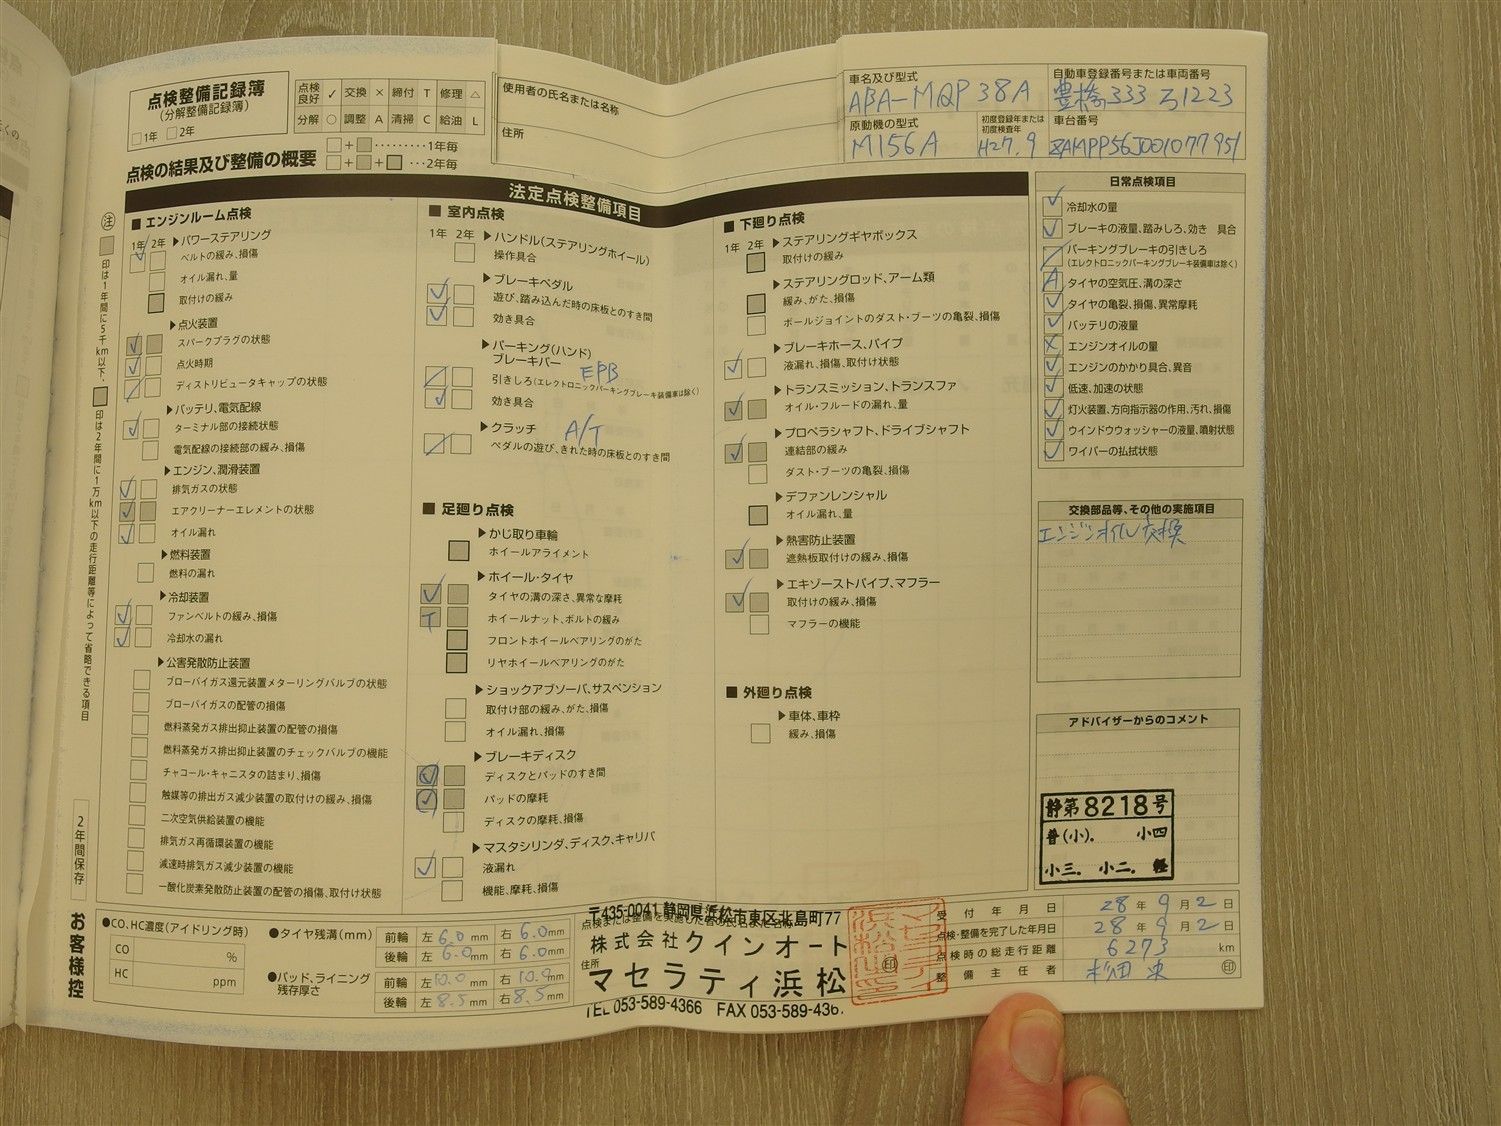 点検整備記録簿
(分解整備記録簿)
□1年 □2年
点検良好 ✓ 交換 × 締付 T 修理 △
分解 ○ 調整 A 清掃 C 給油 L
□+□………1年毎
□+□+□…2年毎
点検の結果及び整備の概要
使用者の氏名または名称
住所
車名及び型式
ABA-MQP38A
自動車登録番号または車両番号
豊橋333 ろ1223
原動機の型式
M156A
初度登録年または
初度検査年
H27.9
車台番号
ZAMPP56J001077951
法定点検整備項目
注 □印は1年間に5千km以下、□印は2年間に1万km以下の走行距離等によって省略できる項目
2年間保存
お客様控
■エンジンルーム点検
1年 2年
▶パワーステアリング
ベルトの緩み、損傷
オイル漏れ、量
取付けの緩み
▶点火装置
スパークプラグの状態
点火時期
ディストリビュータキャップの状態
▶バッテリ、電気配線
ターミナル部の接続状態
電気配線の接続部の緩み、損傷
▶エンジン、潤滑装置
排気ガスの状態
エアクリーナーエレメントの状態
オイル漏れ
▶燃料装置
燃料の漏れ
▶冷却装置
ファンベルトの緩み、損傷
冷却水の漏れ
▶公害発散防止装置
ブローバイガス還元装置メターリングバルブの状態
ブローバイガスの配管の損傷
燃料蒸発ガス排出抑止装置の配管の損傷
燃料蒸発ガス排出抑止装置のチェックバルブの機能
チャコール・キャニスタの詰まり、損傷
触媒等の排出ガス減少装置の取付けの緩み、損傷
二次空気供給装置の機能
排気ガス再循環装置の機能
減速時排気ガス減少装置の機能
一酸化炭素発散防止装置の配管の損傷、取付け状態
■室内点検
1年 2年
▶ハンドル(ステアリングホイール)
操作具合
▶ブレーキペダル
遊び、踏み込んだ時の床板とのすき間
効き具合
▶パーキング(ハンド)
ブレーキバー
EPB
引きしろ(エレクトロニックパーキングブレーキ装備車は除く)
効き具合
▶クラッチ A/T
ペダルの遊び、きれた時の床板とのすき間
■足廻り点検
▶かじ取り車輪
ホイールアライメント
▶ホイール・タイヤ
タイヤの溝の深さ、異常な摩耗
T ホイールナット、ボルトの緩み
フロントホイールベアリングのがた
リヤホイールベアリングのがた
▶ショックアブソーバ、サスペンション
取付け部の緩み、がた、損傷
オイル漏れ、損傷
▶ブレーキディスク
ディスクとパッドのすき間
パッドの摩耗
ディスクの摩耗、損傷
▶マスタシリンダ、ディスク、キャリパ
液漏れ
機能、摩耗、損傷
■下廻り点検
1年 2年
▶ステアリングギヤボックス
取付けの緩み
▶ステアリングロッド、アーム類
緩み、がた、損傷
ボールジョイントのダスト・ブーツの亀裂、損傷
▶ブレーキホース、パイプ
液漏れ、損傷、取付け状態
▶トランスミッション、トランスファ
オイル・フルードの漏れ、量
▶プロペラシャフト、ドライブシャフト
連結部の緩み
ダスト・ブーツの亀裂、損傷
▶デファンレンシャル
オイル漏れ、量
▶熱害防止装置
遮熱板取付けの緩み、損傷
▶エキゾーストパイプ、マフラー
取付けの緩み、損傷
マフラーの機能
■外廻り点検
▶車体、車枠
緩み、損傷
日常点検項目
冷却水の量
ブレーキの液量、踏みしろ、効き 具合
パーキングブレーキの引きしろ
(エレクトロニックパーキングブレーキ装備車は除く)
A タイヤの空気圧、溝の深さ
タイヤの亀裂、損傷、異常摩耗
バッテリの液量
× エンジンオイルの量
エンジンのかかり具合、異音
低速、加速の状態
灯火装置、方向指示器の作用、汚れ、損傷
ウインドウウォッシャーの液量、噴射状態
ワイパーの払拭状態
交換部品等、その他の実施項目
エンジンオイル交換
アドバイザーからのコメント
静第8218号
普(小). 小四
小三. 小二. 軽
●CO、HC濃度(アイドリング時)
CO %
HC ppm
●タイヤ残溝(mm)
前輪 左 6.0 mm 右 6.0 mm
後輪 左 6.0 mm 右 6.0 mm
●パッド、ライニング
残存厚さ
前輪 左 10.0 mm 右 10.0 mm
後輪 左 8.5 mm 右 8.5 mm
〒435-0041 静岡県浜松市東区北島町77
点検または整備を実施した者の氏名または名称
株式会社クインオート
住所
マセラティ浜松
TEL 053-589-4366 FAX 053-589-436
印
受付年月日 28年9月2日
点検・整備を完了した年月日 28年9月2日
点検時の総走行距離 6273 km
整備主任者 杉田 印